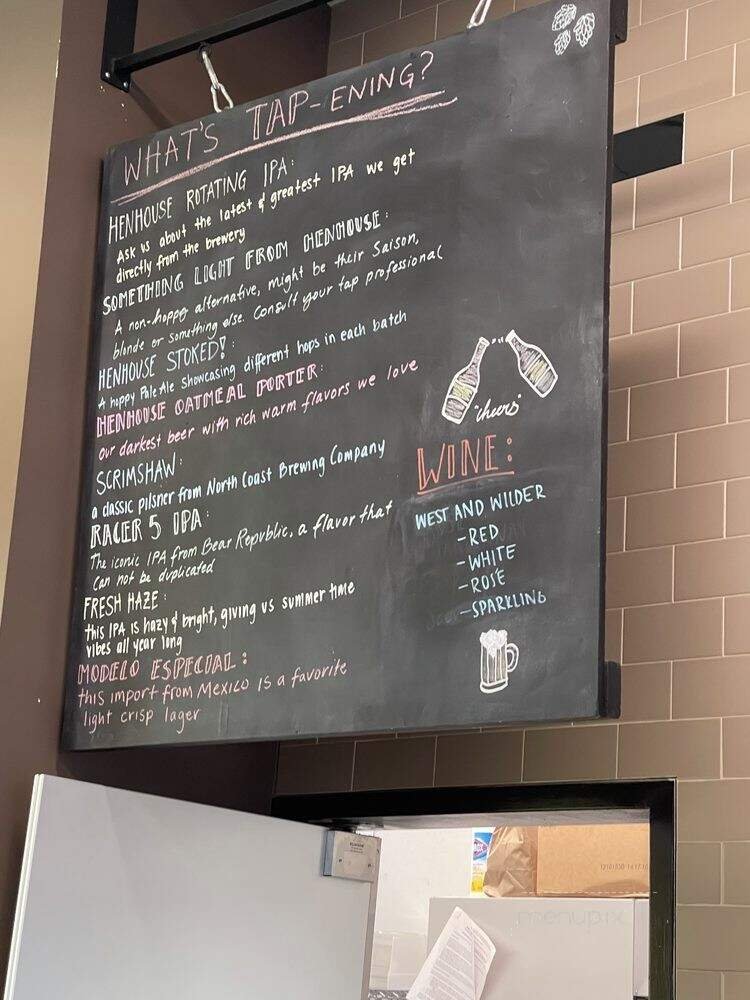 WHAT'S TAP-ENING?
HENHOUSE ROTATING IPA:
Ask us about the latest & greatest IPA we get
directly from the brewery
SOMETHING LIGHT FROM HENHOUSE:
A non-hoppy alternative, might be their Saison,
blonde or something else. Consult your tap professional
HENHOUSE STOKED!:
A hoppy Pale Ale showcasing different hops in each batch
HENHOUSE OATMEAL PORTER:
our darkest beer with rich warm flavors we love
SCRIMSHAW:
a classic pilsner from North Coast Brewing Company
RACER 5 IPA:
The iconic IPA from Bear Republic, a flavor that
can not be duplicated
FRESH HAZE:
this IPA is hazy & bright, giving us summer time
vibes all year long
MODELO ESPECIAL:
this import from Mexico is a favorite
light crisp lager
"cheers"
WINE:
WEST AND WILDER
-RED
-WHITE
-ROSÉ
-SPARKLING
menupix